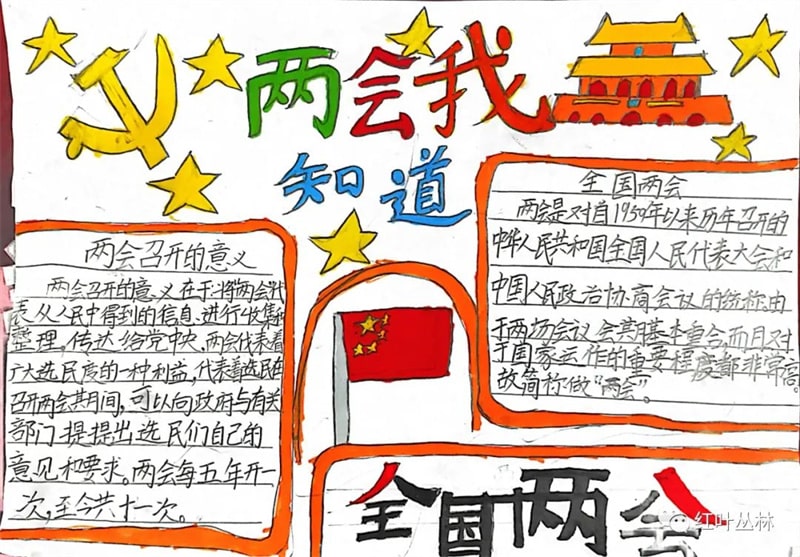 两会我
知道
两会召开的意义
两会召开的意义在于:将两会代
表从人民中得到的信息进行收集和
整理。传达给党中央、两会代表着
广大选民度的一种利益,代表着选民在
召开两会其期间,可以向政府与有关
部门提提出选民们自己的
意见和要求。两会每五年开一
次,至今共十一次。
全国两会
两会是对首1950年以来历年召开的
中华人民共和国全国人民代表大会和
中国人民政治协商会议的统称.由
于两场会议会其期基本重合,而且对
于国家运作的重要程度都非常高.
故简称做“两会”。
全国两会
红叶丛林